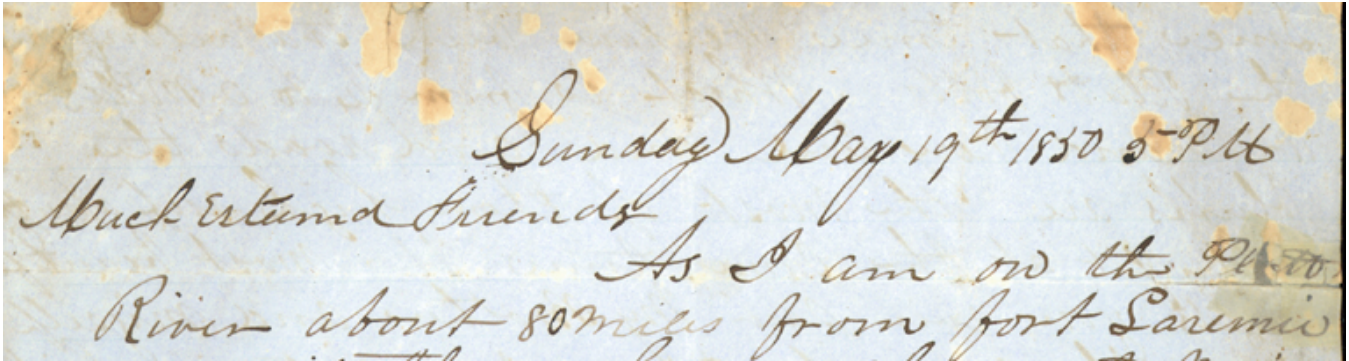 Sunday May 19th 1850 5 PM
Much Esteemd Friends
As I am on the Platte
River about 80 miles from fort Laremie